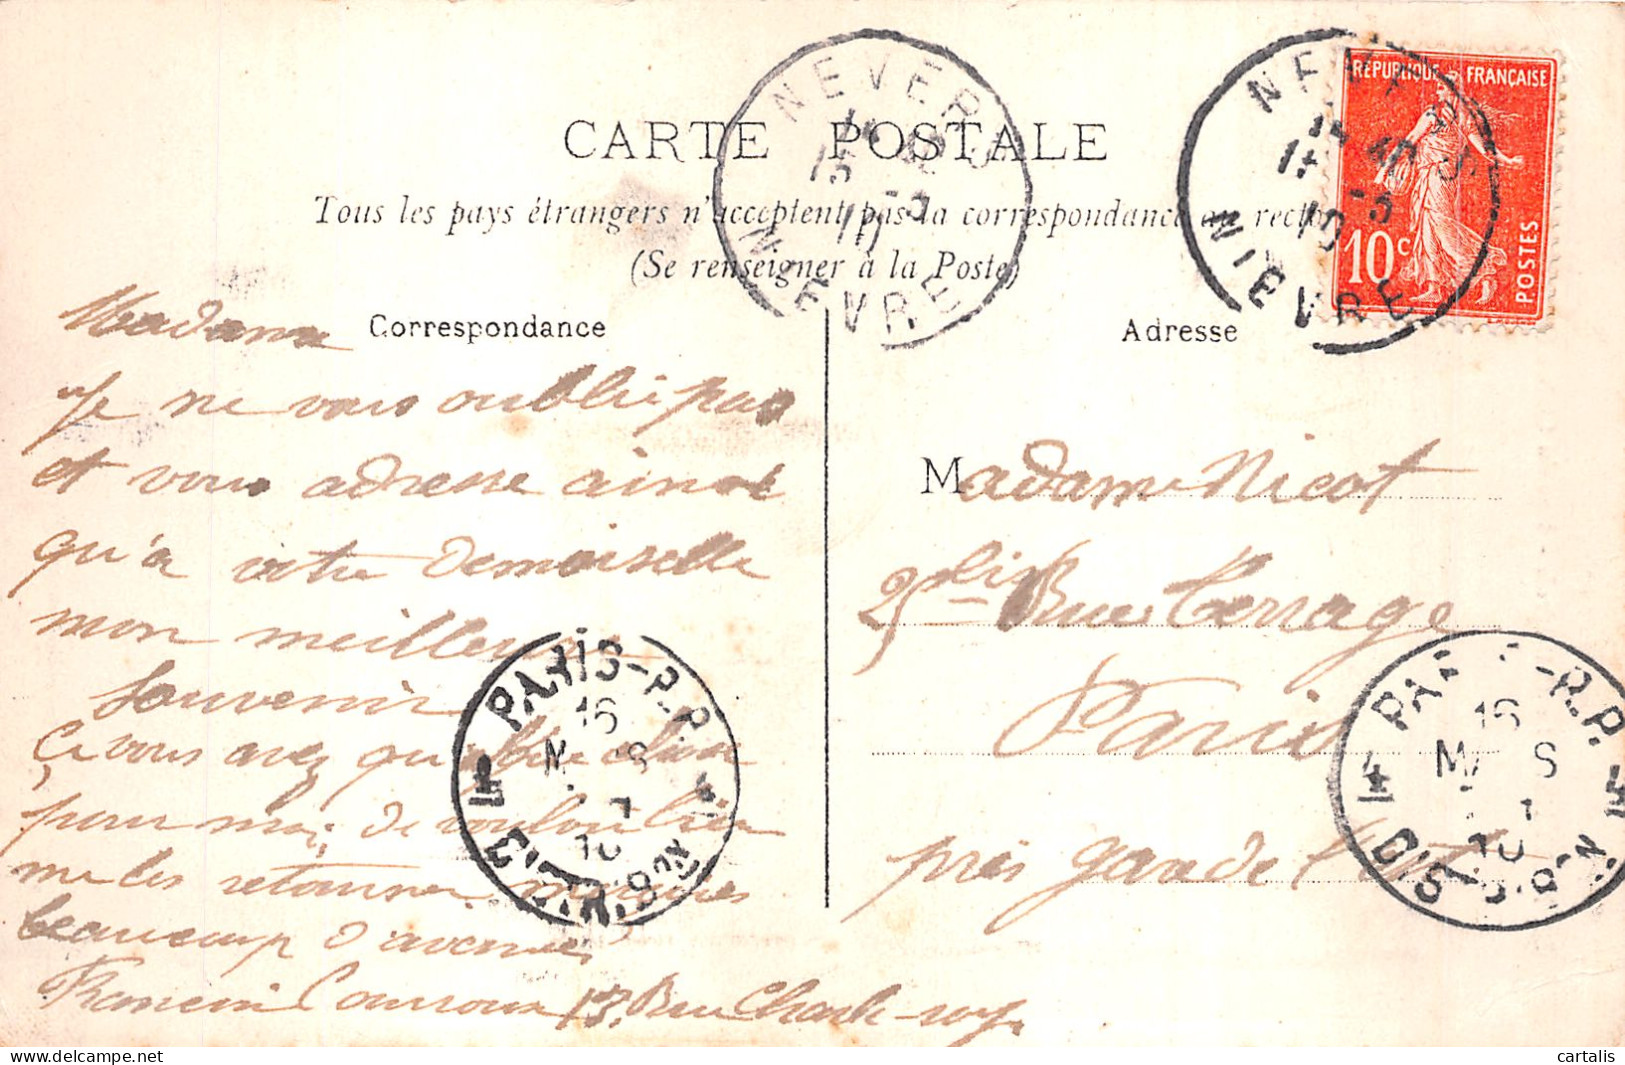 CARTE POSTALE
Tous les pays étrangers n'acceptent pas la correspondance au recto
(Se renseigner à la Poste)
Correspondance
Adresse
RÉPUBLIQUE FRANÇAISE
10c
POSTES
NEVERS
15
10
NIEVRE
NEVERS
15
10
NIEVRE
Madame
Je ne vous oublie pas
et vous adresse ainsi
qu'à votre Demoiselle
mon meilleur
Souvenir
Si vous avez quelque chose
pour moi de vouloir bien
me les retourner
beaucoup d'avance
13, Rue
Madame Nicot
25 bis Rue Terrage
Paris
près gare de l'Est
PARIS-R.P.
16
10
DISTRIBON
PARIS-R.P.
16
10
DISTRIBON
cartalis